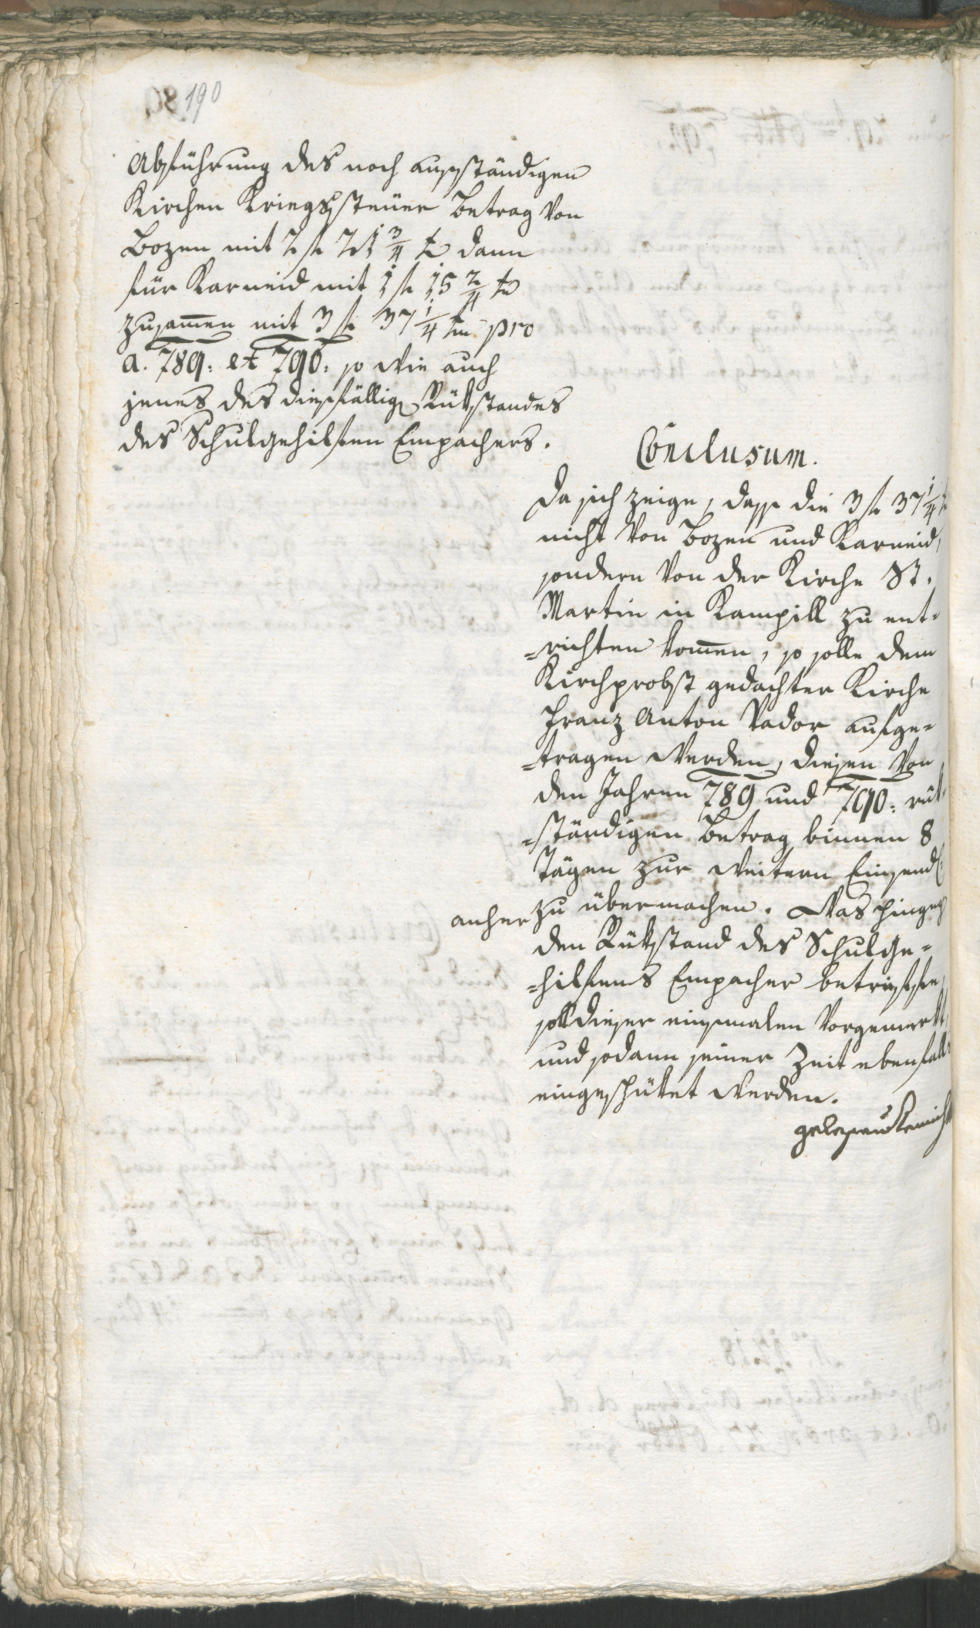 190
Abführung des noch ausständigen
Kirchen Kriegssteuer Betrag von
Bozen mit 2 f 21 3/4 x dann
für Karneid mit 1 f 15 2/4 x
zusammen mit 3 f 37 1/4 pro
a. 789: et 790: so wie auch
jenes des diesfällig Rükstandes
des Schulgehilfen Empachers.
Conclusum.
Da sich zeige, dass die 3 f 37 1/4
nicht von Bozen und Karneid,
sondern von der Kirche St.
Martin in Kampill zu ent-
-richten kommen, so solle dem
Kirchprobst gedachter Kirche
Franz Anton Vador aufge-
-tragen werden, diesen von
den Jahren 789 und 790: rük-
-ständigen Betrag binnen 8
Tägen zur weitern Einsend
anher zu übermachen. Was hingeg
den Rükstand des Schulge-
-hilfens Empacher betrifft,
soll dieser einsmalen vorgemerkt
und sodann seiner Zeit ebenfalls
eingeschüket werden.